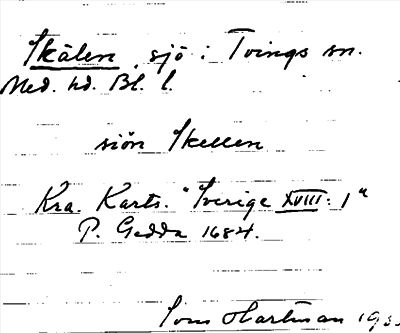 Skälen, sjö i Tvings sn.
Med. hd. Bl. l.
siön Skellen
Kra. Karts. "Sverige XVIII: 1"
P. Gedda 1684.
Hartman 193